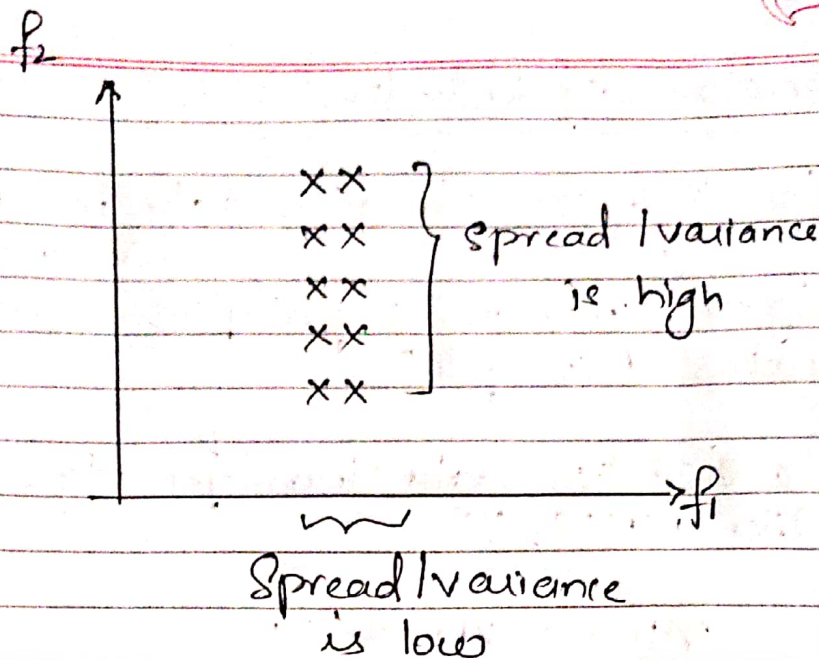 f₂
x x
x x
x x
x x
x x
Spread / variance
is high
f₁
Spread / variance
is low